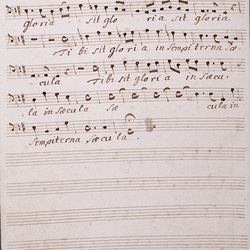 gloria sit glo ria sit gloria
Tibi sit gloria in sempiterna sæ
cula Tibi sit gloria in sæcu,
la in sæcula sæ cula in
sempiterna sæcula.